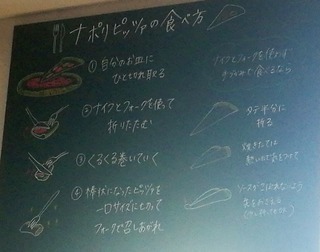 ナポリピッツァの食べ方
① 自分のお皿に
ひときれ取る
② ナイフとフォークを使って
折りたたむ
③ くるくる巻いていく
④ 棒状になったピッツァを
一口サイズに切って
フォークで召しあがれ
ナイフとフォークを使わず
手づかみで食べるなら
タテ半分に
折る
焼きたては
熱いので気をつけて
ソースがこぼれないよう
先をおさえる